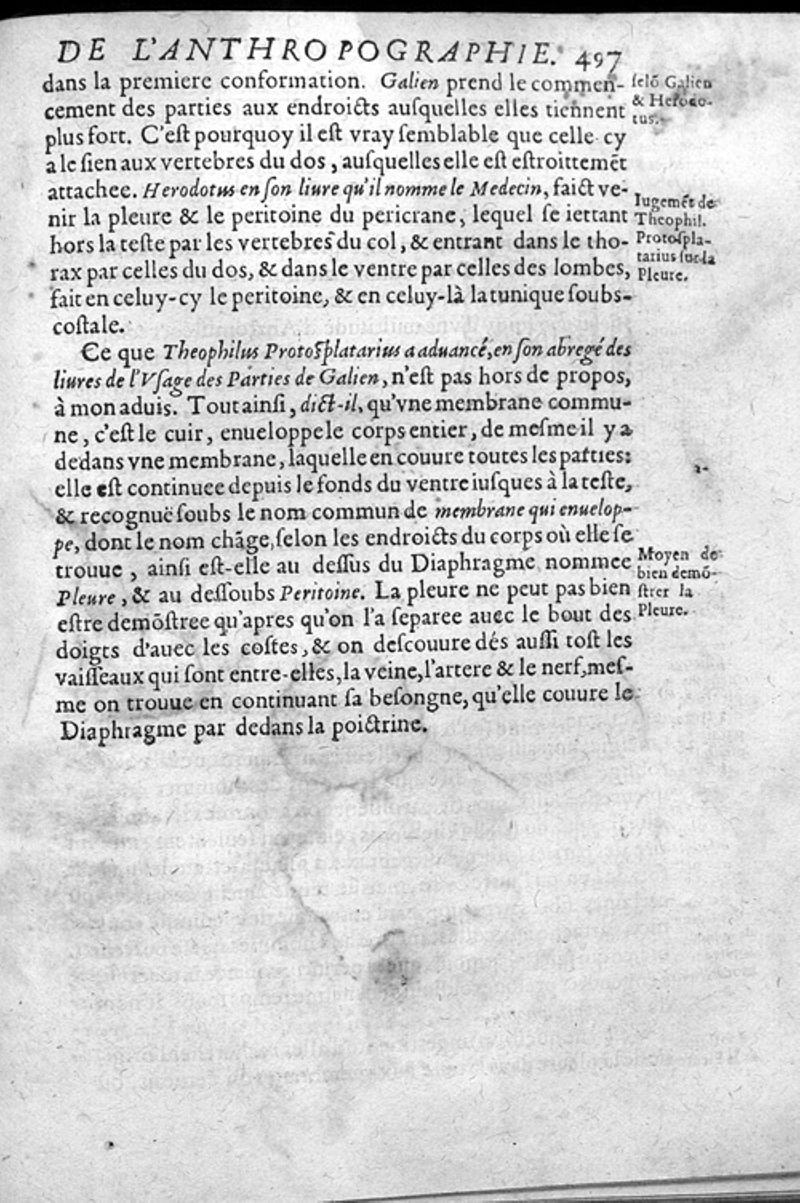 DE L'ANTHROPOGRAPHIE. 497
dans la premiere conformation. Galien prend le commen-
cement des parties aux endroicts auſquelles elles tiennent
plus fort. C'eſt pourquoy il eſt vray ſemblable que celle cy
a le ſien aux vertebres du dos, auſquelles elle eſt eſtroittemēt
attachee. Herodotus en ſon liure qu'il nomme le Medecin, faict ve-
nir la pleure & le peritoine du pericrane, lequel ſe iettant
hors la teſte par les vertebres du col, & entrant dans le tho-
rax par celles du dos, & dans le ventre par celles des lombes,
fait en celuy-cy le peritoine, & en celuy-là la tunique ſoubs-
coſtale.
Ce que Theophilus Protoſplatarius a aduancé, en ſon abregé des
liures de l'Vſage des Parties de Galien, n'eſt pas hors de propos,
à mon aduis. Tout ainſi, dict-il, qu'vne membrane commu-
ne, c'eſt le cuir, enueloppe le corps entier, de meſme il y a
dedans vne membrane, laquelle en couure toutes les parties:
elle eſt continuee depuis le fonds du ventre iuſques à la teſte,
& recognuë ſoubs le nom commun de membrane qui enuelop-
pe, dont le nom chāge, ſelon les endroicts du corps où elle ſe
trouue, ainſi eſt-elle au deſſus du Diaphragme nommee
Pleure, & au deſſoubs Peritoine. La pleure ne peut pas bien
eſtre demōſtree qu'apres qu'on l'a ſeparee auec le bout des
doigts d'auec les coſtes, & on deſcouure dés auſſi toſt les
vaiſſeaux qui ſont entre-elles, la veine, l'artere & le nerf, meſ-
me on trouue en continuant ſa beſongne, qu'elle couure le
Diaphragme par dedans la poictrine.
ſelō Galien
& Herodo-
tus.
Iugemēt de
Theophil.
Protoſpla-
tarius ſur la
Pleure.
Moyen de
bien demō-
ſtrer la
Pleure.